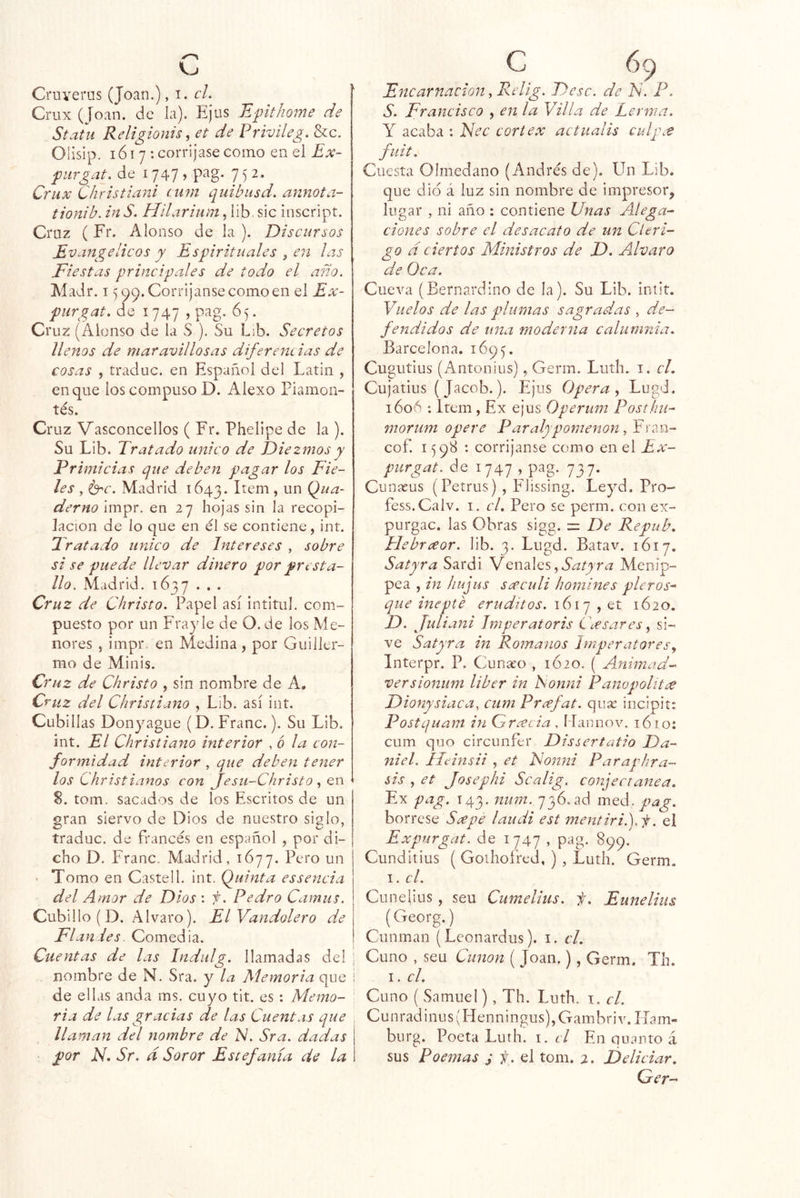 C
Cruverus (Joan.), 1. cl.
Crux (Joan. de la). Ejus Epithome de
Statu Religionis, et de Privileg. &c.
Olisip. 1617: corrijase como en el Ex-
purgat. de 1747, pag. 752.
Crux Christiani cum quibusd. annota-
tionib. in S. Hilarium, lib. sic inscript.
Cruz ( Fr. Alonso de la ). Discursos
Evangelicos y Espirituales , en las
Fiestas principales de todo el año.
Madr. 1599. Corrijanse como en el Ex-
purgat. de 1747 , pag. 65.
Cruz (Alonso de la S ). Su Lib. Secretos
llenos de maravillosas diferencias de
cosas , traduc. en Español del Latin ,
en que los compuso D. Alexo Piamon-
tés.
Cruz Vasconcellos ( Fr. Phelipe de la ).
Su Lib. Tratado unico de Diezmos y
Primicias que deben pagar los Fie-
les , &c. Madrid 1643. Item , un Qua-
derno impr. en 27 hojas sin la recopi-
lacion de lo que en él se contiene, int.
Tratado unico de Intereses , sobre
si se puede llevar dinero por presta-
llo. Madrid. 1637 . . .
Cruz de Christo. Papel así intitul. com-
puesto por un Frayle de O. de los Me-
nores , impr. en Medina , por Guiller-
mo de Minis.
Cruz de Christo , sin nombre de A.
Cruz del Christiano , Lib. así int.
Cubillas Donyague ( D. Franc. ). Su Lib.
int. El Christiano interior , ó la con-
formidad interior , que deben tener
los Christianos con Jesu-Christo , en
8. tom. sacados de los Escritos de un
gran siervo de Dios de nuestro siglo,
traduc. de francés en español , por di-
cho D. Franc. Madrid, 1677. Pero un
Tomo en Castell. int. Quinta essencia
del Amor de Dios : ℣. Pedro Camus.
Cubillo ( D. Alvaro). El Vandolero de
Flandes. Comedia.
Cuentas de las Indulg. llamadas del
nombre de N. Sra. y la Memoria que
de ellas anda ms. cuyo tit. es : Memo-
ria de las gracias de las Cuentas que
llaman del nombre de N. Sra. dadas
por N. Sr. á Soror Estefanía de la
C 69
Encarnacion, Relig. Desc. de N. P.
S. Francisco , en la Villa de Lerma.
Y acaba : Nec cortex actualis culpæ
fuit.
Cuesta Olmedano (Andrés de). Un Lib.
que dió á luz sin nombre de impresor,
lugar , ni año : contiene Unas Alega-
ciones sobre el desacato de un Cleri-
go á ciertos Ministros de D. Alvaro
de Oca.
Cueva (Bernardino de la). Su Lib. intit.
Vuelos de las plumas sagradas , de-
fendidos de una moderna calumnia.
Barcelona. 1695.
Cugutius (Antonius) , Germ. Luth. 1. cl.
Cujatius ( Jacob. ). Ejus Opera , Lugd.
1606 : Item , Ex ejus Operum Posthu-
morum opere Paralypomenon, Fran-
cof. 1598 : corrijanse como en el Ex-
purgat. de 1747 , pag. 737.
Cunæus (Petrus) , Flissing. Leyd. Pro-
fess. Calv. 1. cl. Pero se perm. con ex-
purgac. las Obras sigg. = De Repub.
Hebræor. lib. 3. Lugd. Batav. 1617.
Satyra Sardi Venales, Satyra Menip-
pea , in hujus sæculi homines pleros-
que ineptè eruditos. 1617 , et 1620.
D. Juliani Imperatoris Cæsares , si-
ve Satyra in Romanos Imperatores,
Interpr. P. Cunæo , 1620. ( Animad-
versionum liber in Nonni Panopolitæ
Dionysiaca, cum Præfat. quæ incipit:
Postquam in Græcia , Hannov. 1610:
cum quo circunfer Dissertatio Da-
niel. Heinsii , et Nonni Paraphra-
sis , et Josephi Scalig. conjectanea.
Ex pag. 143. num. 736. ad med. pag.
borrese Sæpè laudi est mentiri.). ℣. el
Expurgat. de 1747 , pag. 899.
Cunditius ( Gothofred, ) , Luth. Germ.
1. cl.
Cunelius , seu Cumelius. ℣. Eunelius
(Georg.)
Cunman (Leonardus). 1. cl.
Cuno , seu Cunon ( Joan. ) , Germ. Th.
1. cl.
Cuno ( Samuel ) , Th. Luth. 1. cl.
Cunradinus (Henningus), Gambriv. Ham-
burg. Poeta Luth. 1. cl En quanto á
sus Poemas ; ℣. el tom. 2. Deliciar.
Ger-